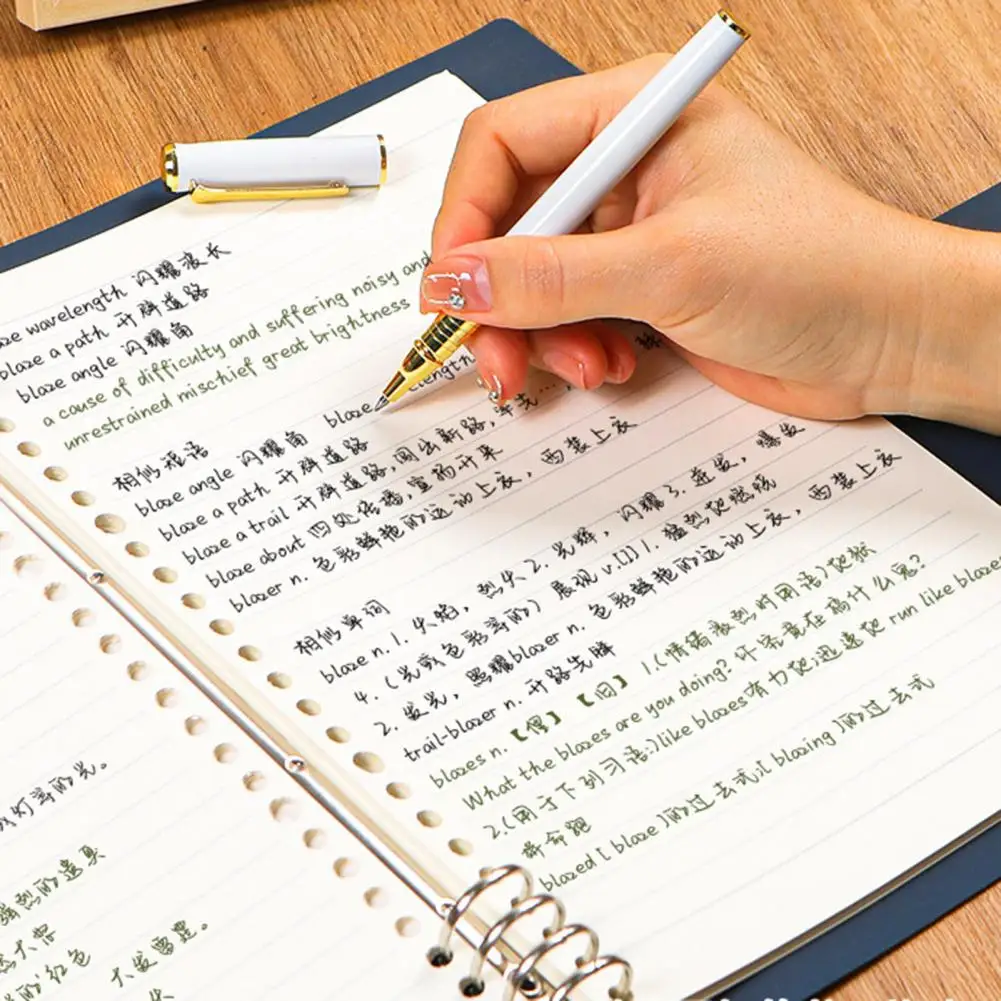 aze wavelength 闪耀波长
blaze a path 开辟道路
blaze angle 闪耀角
a cause of difficulty and suffering noisy and
unrestrained mischief great brightness
相似短语
blaze angle 闪耀角 blaze elength
blaze a path 开辟道路
blaze a trail 开辟道路,闯出新路,率先…,
blaze about 四处传播,宣扬开来
blazer n. 色彩鲜艳的运动上衣,西装上衣
相似单词
blaze n. 1. 火焰,烈火 2. 光辉,闪耀 3. 迸发,爆发
4. (光或色彩等的) 展现 v.[I] 1. 猛烈地燃烧
2. 发光,照耀 blazer n. 色彩鲜艳的运动上衣,西装上衣
trail-blazer n. 开路先锋
blazes n. 【俚】【旧】 1.(情绪激烈时用语)地狱
What the blazes are you doing? 你究竟在搞什么鬼?
2.(用于下列习语:)like blazes 有力地;迅速地 run like blazes
拼命跑
blazed [ blaze ]的过去式;[ blazing ]的过去式
灯等的光。
强烈的
的红色
大发雷霆。